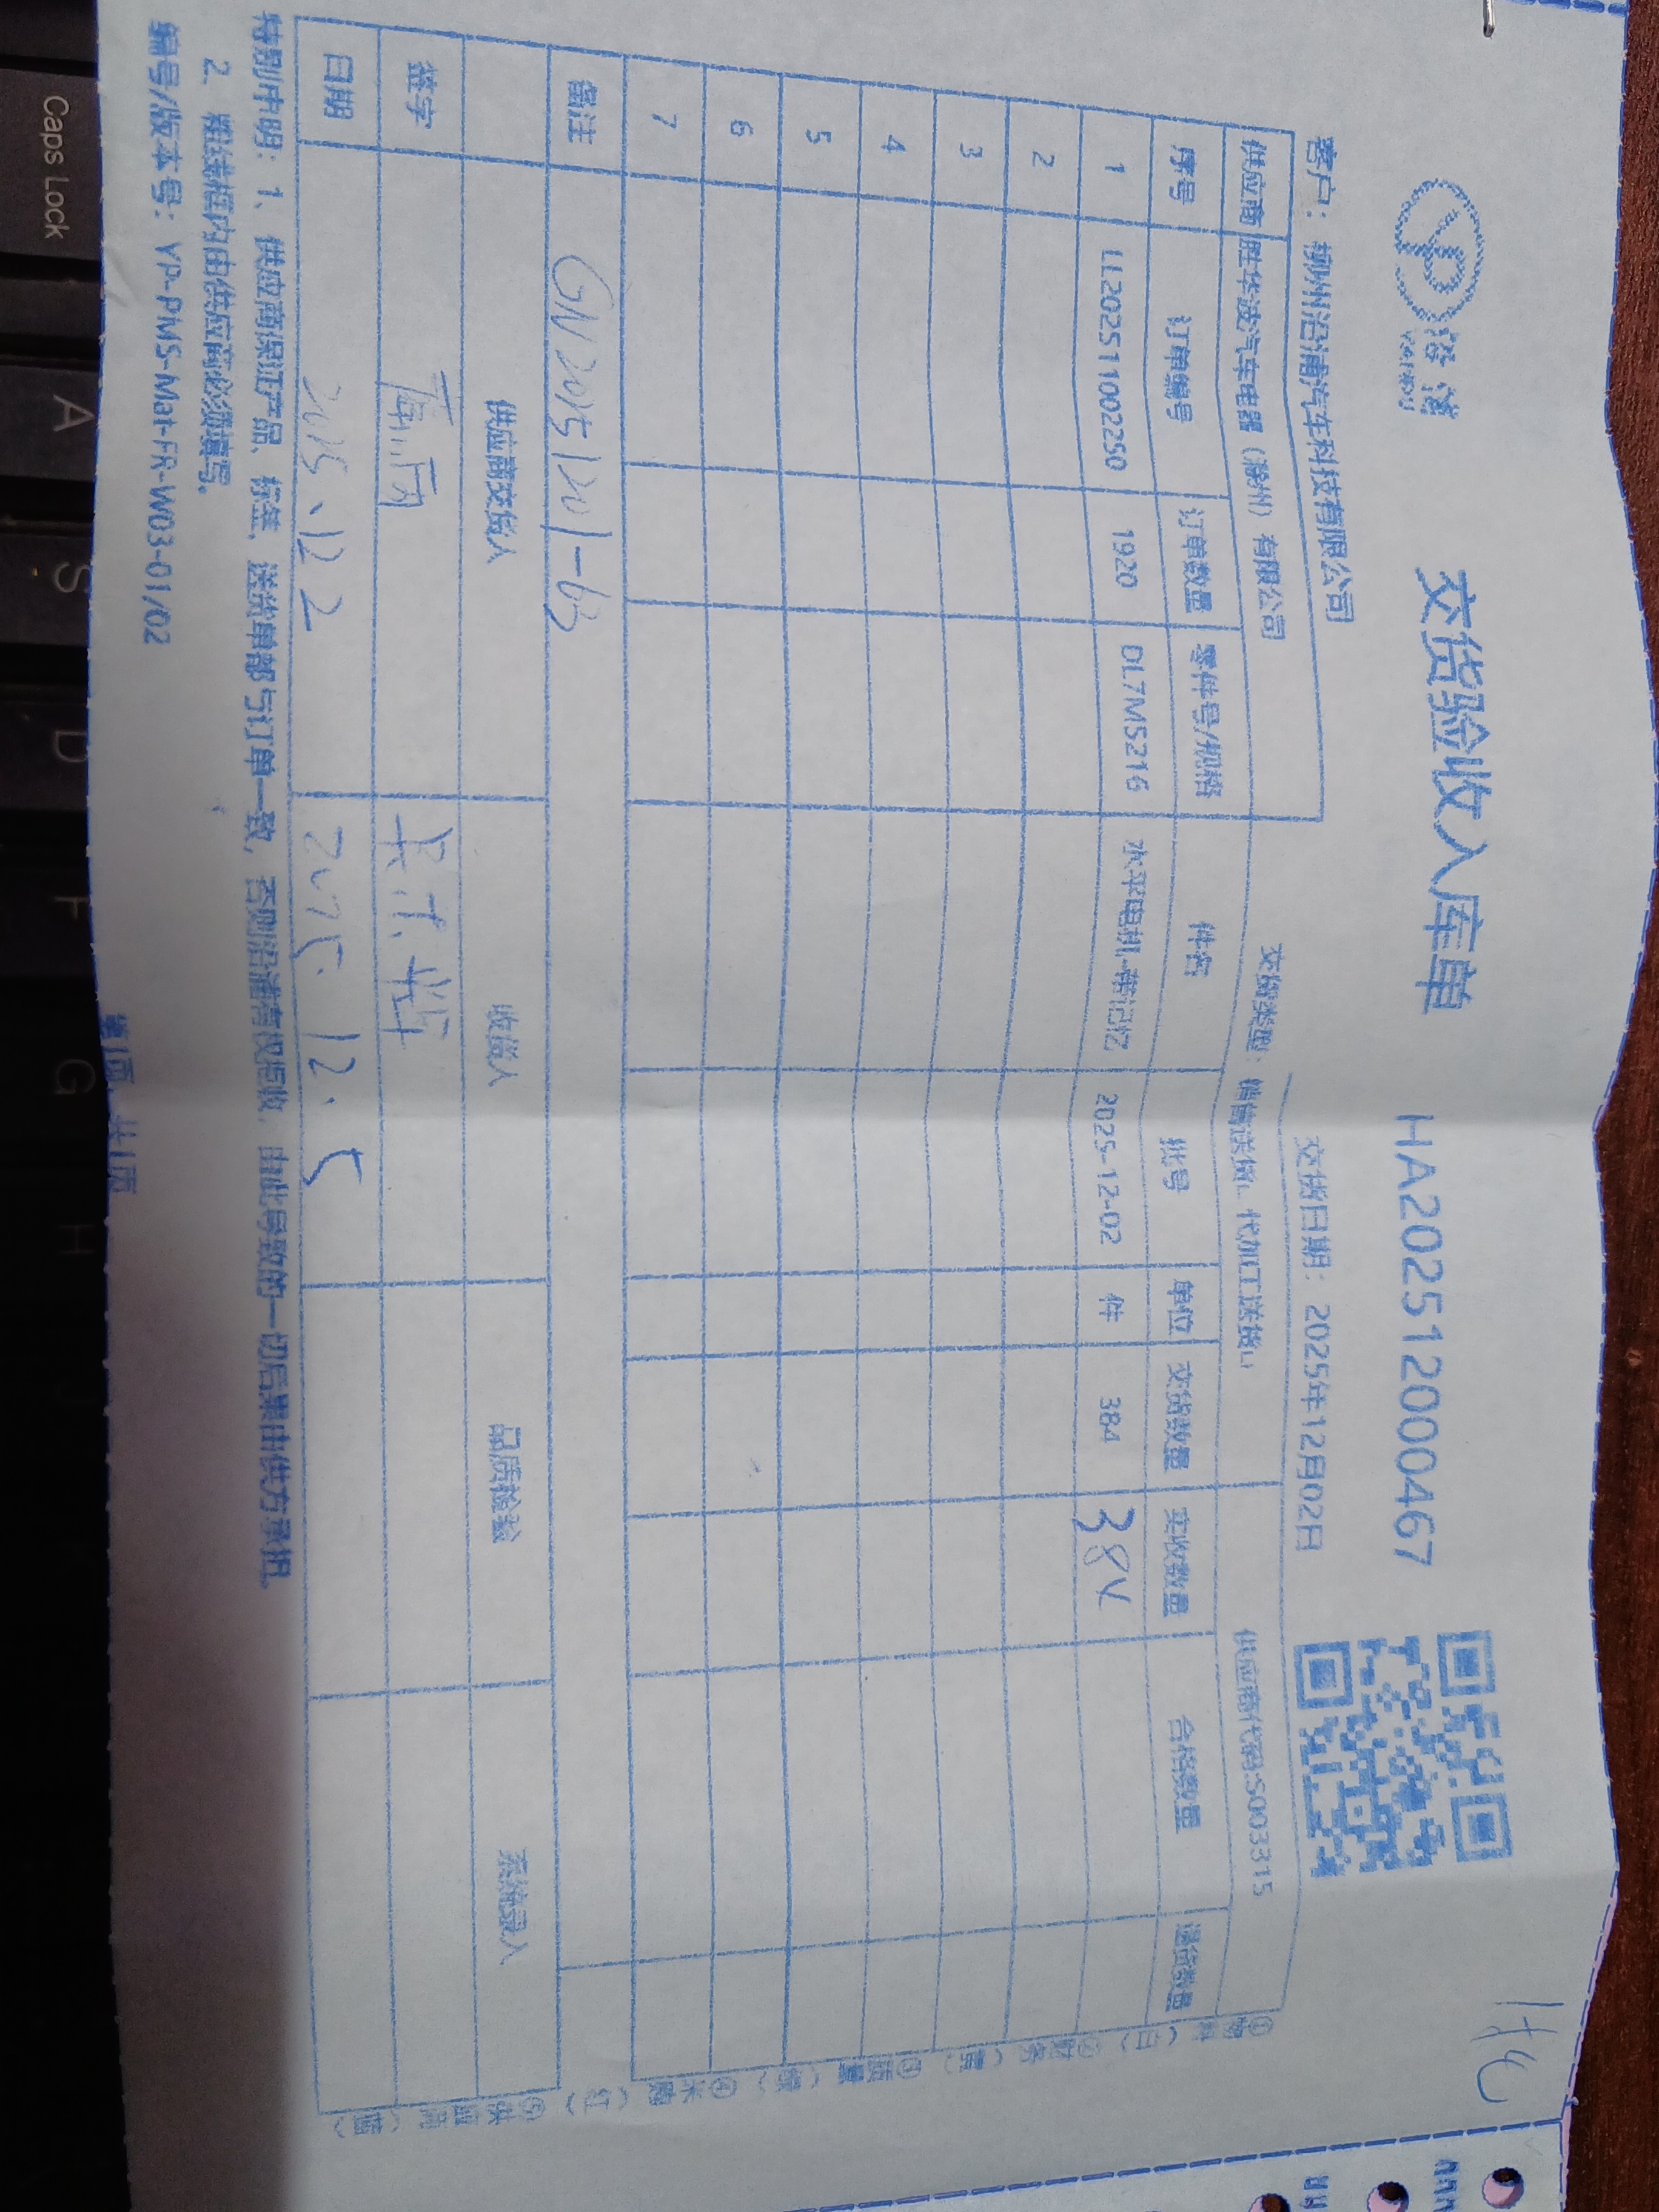 交货验收入库单 HA20251200467
客户：柳州沿浦汽车科技有限公司 交货日期：2025年12月02日
供应商 胜华波汽车电器（滁州）有限公司 交货类型：销售送货□ 代加工送货□ 供应商代码:S003315
序号 订单编号 订单数量 零件号/规格 件名 批号 单位 交货数量 实收数量 合格数量 退货数量
1 LL20251100225O 1920 DL7M5216 水平电机-带记忆 2025-12-02 件 384 384
2
3
4
5
6
7
备注 GN20251201-63
供应商交货人 收货人 品质检验 系统录入
签字
日期 2025.12.2 2025.12.5
特别申明：1、供应商保证产品、标签、送货单都与订单一致，否则沿浦有权拒收，由此导致的一切后果由供方承担。
2、粗线框内由供应商必须填写。
编号/版本号：YP-PMS-Mat-FR-W03-01/02
第1页，共1页
Caps Lock
A
S
D
F
G
H